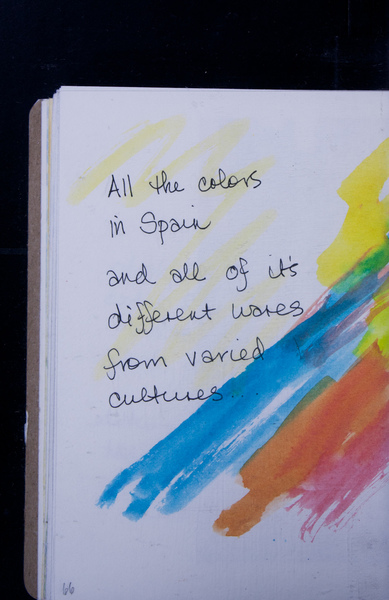 All the colors
in Spain
and all of it's
different wares
from varied
cultures...
66